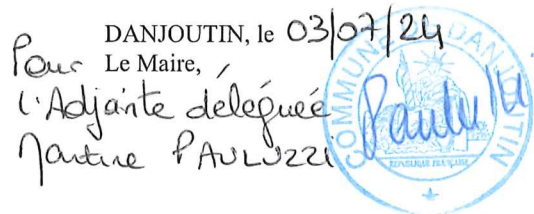 DANJOUTIN, le 03/07/24
Pour Le Maire,
l'Adjointe déléguée
Martine PAULUZZI
COMMUNE DE DANJOUTIN
REPUBLIQUE FRANÇAISE